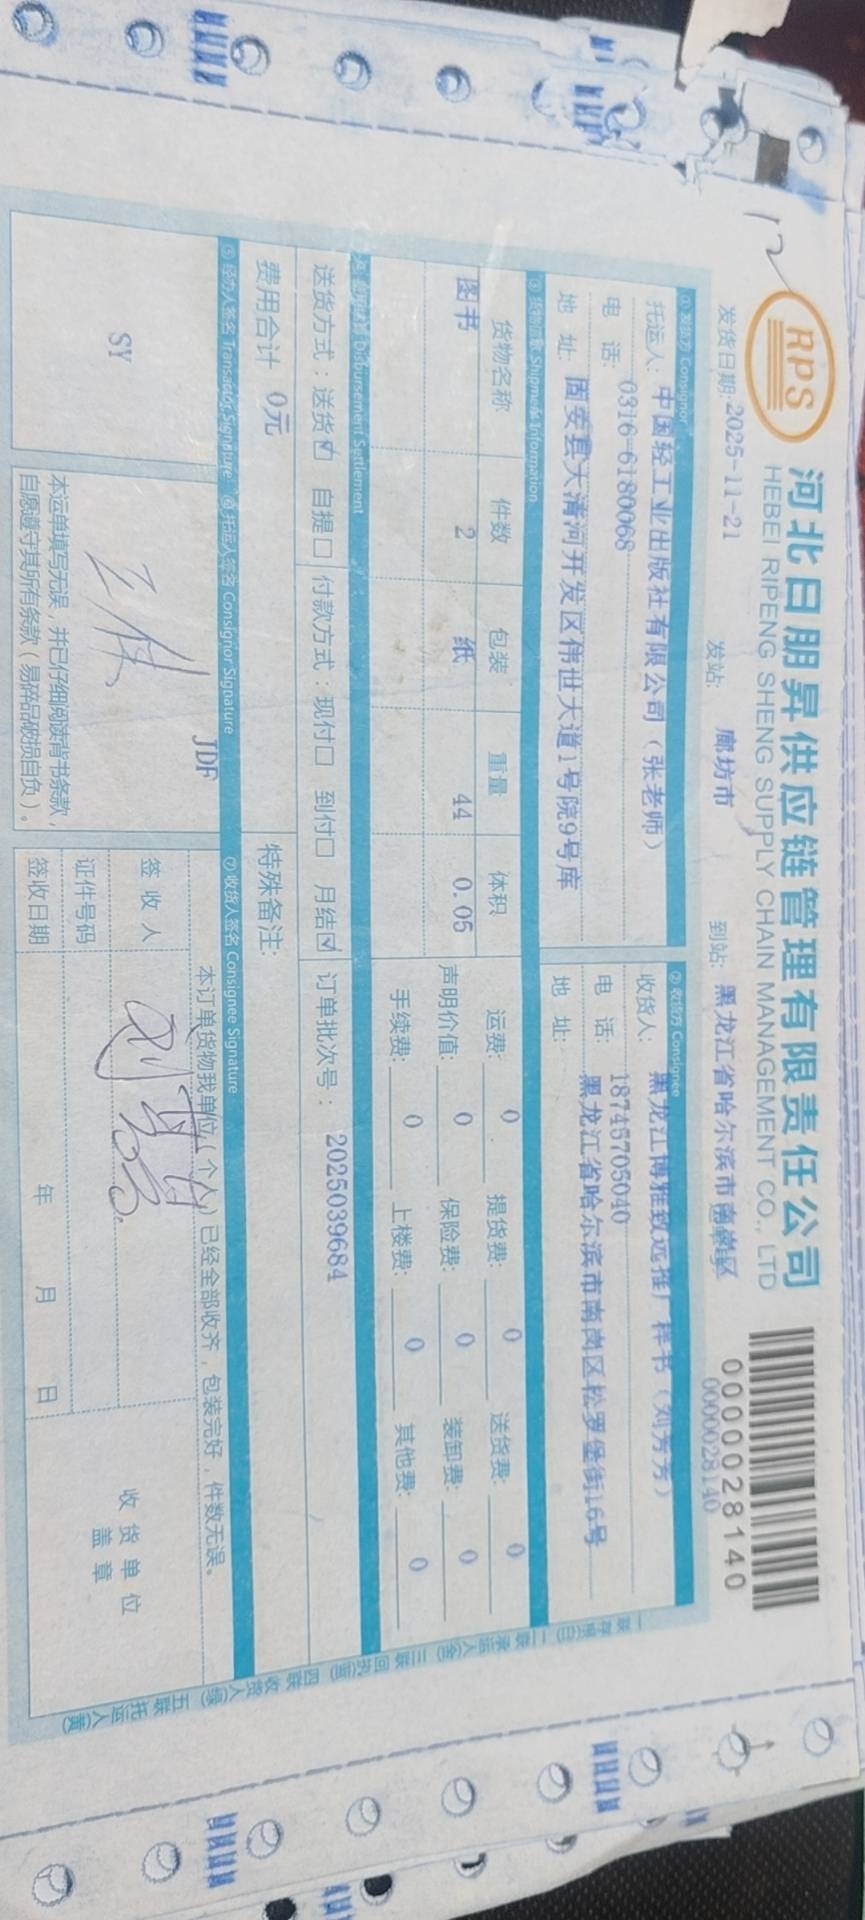 RPS
河北日朋昇供应链管理有限责任公司
HEBEI RIPENG SHENG SUPPLY CHAIN MANAGEMENT CO., LTD
0000028140
0000028140
发货日期: 2025-11-21 发站: 廊坊市 到站: 黑龙江省哈尔滨市南岗区
①发货方 Consignor ②收货方 Consignee
托运人: 中国轻工业出版社有限公司（张老师） 收货人: 黑龙江博雅致远推广样书（刘芳芳）
电 话: 0316-6180068 电 话: 18745705040
地 址: 固安县大清河开发区伟世大道1号院9号库 地 址: 黑龙江省哈尔滨市南岗区松罗堡街16号
③货物信息 Shipment Information
货物名称 件数 包装 重量 体积 运费: 0 提货费: 0 送货费: 0
图书 2 纸 44 0.05 声明价值: 0 保险费: 0 装卸费: 0
手续费: 0 上楼费: 0 其他费: 0
Disbursement Settlement
送货方式：送货☑ 自提□ 付款方式：现付□ 到付□ 月结☑ 订单批次号： 2025039684
费用合计 0元 特殊备注:
⑤经办人签名 Transactor Signature ⑥托运人签名 Consignor Signature ⑦收货人签名 Consignee Signature
SY
JDF
本运单填写无误，并已仔细阅读背书条款，
自愿遵守其所有条款（易碎品破损自负）。
本订单货物我单位（个人）已经全部收齐，包装完好，件数无误。
签 收 人
证件号码
签收日期 年 月 日
收 货 单 位
盖 章
一联存根(白) 二联承运人(金) 三联回执(蓝) 四联收货人(绿) 五联托运人(黄)